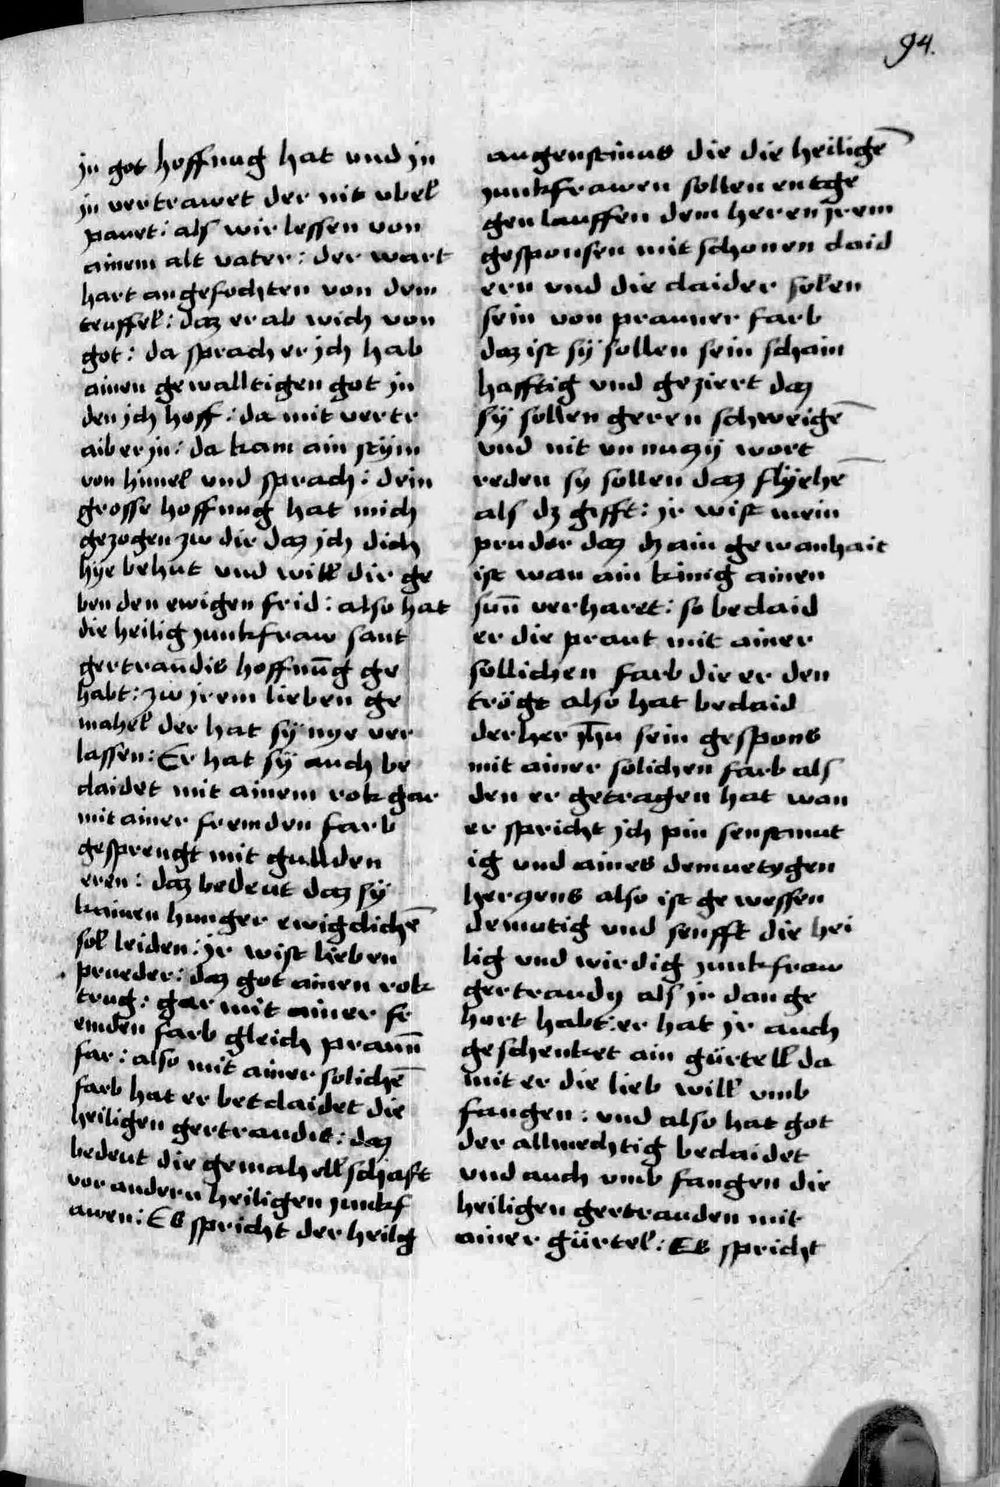 94.
jn got hoffnug hat vnd jn
jn vertrawet der nit vbel
pauet: als wir lessen von
ainem alt vater: der wart
hart angefochten von dem
teuffel: daz er ab wich von
got: da sprach er jch hab
ainen gewalltigen got jn
den jch hoff: da mit vertr
aib er jn: da kam ain stÿm
von himel vnd sprach: dein
grosse hoffnug hat mich
gezogen zw dir daz jch dich
hye behut vnd will dir ge
ben den ewigen frid: also hat
die heilig junkfraw sant
gertraudis hoffnūg ge
habt: zw jrem lieben ge
mahel der hat sÿ nye ver
lassen: Er hat sÿ auch be
claidet mit ainem rok gar
mit ainer fremden farb
gesprengt mit gullden
eren: daz bedeut daz sÿ
kainen hunger ewigclichē
sol leiden: jr wist lieben
prueder: daz got ainen rok
trug: gar mit ainer fr
emden farb gleich praun̄
far: also mit ainer solichē
farb hat er betclaidet die
heiligen gertraudis: daz
bedeut die gemahellschaft
vor andern heiligen junkf
awen: Es spricht der heilig
augenstinus die die heiligē
junkfrawen sollen entge
gen lauffen dem heren jrem
gesponsen mit schonen claid
ern vnd die claider solen
sein von prauner farb
daz ist sÿ sollen sein scham
hafftig vnd geziert daz
sÿ sollen geren schweigē
vnd nit vnnuczÿ wort
reden sy sollen daz flÿehē
als dz gifft: jr wist mein
pruder daz dz ain gewanhait
ist wan ain kinig ainen
sun̄ verharet: so beclaid
er die praut mit ainer
sollichen farb die er den
trögt also hat beclaid
der her jh̄u sein gespons
mit ainer solichen farb als
den er getragen hat wan
er spricht jch pin senftmut
ig vnd aines demuetygen
herczens also ist gewessen
demutig vnd senfft die hei
lig vnd wirdig junkfraw
gertraudy als jr dan ge
hort habt: er hat jr auch
geschenket ain gürtell da
mit er die lieb will vmb
fangen: vnd also hat got
der allmechtig beclaidet
vnd auch vmb fangen die
heiligen gertrauden mit
ainer gürtel: Es spricht